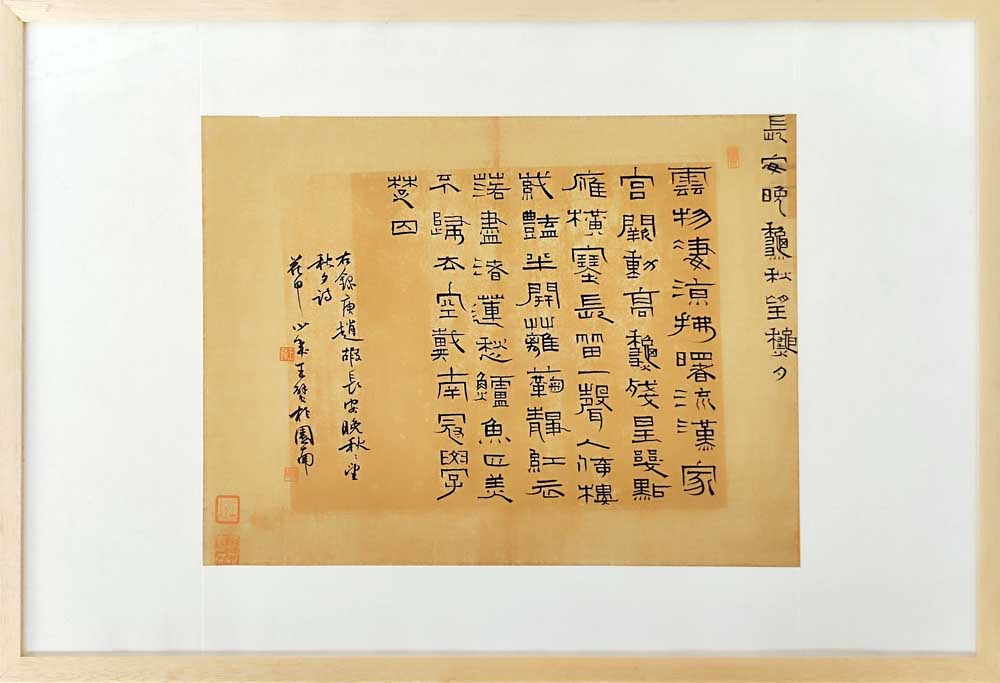 長安晚龝秋望龝夕
雲物凄涼拂曙流漢家
宮闕動高龝殘星幾點
雁橫塞長笛一聲人倚樓
紫豔半開籬菊靜紅衣
落盡渚蓮愁鱸魚正美
不歸去空戴南冠學
楚囚
右錄唐趙嘏長安晚秋望
秋夕詩
花甲